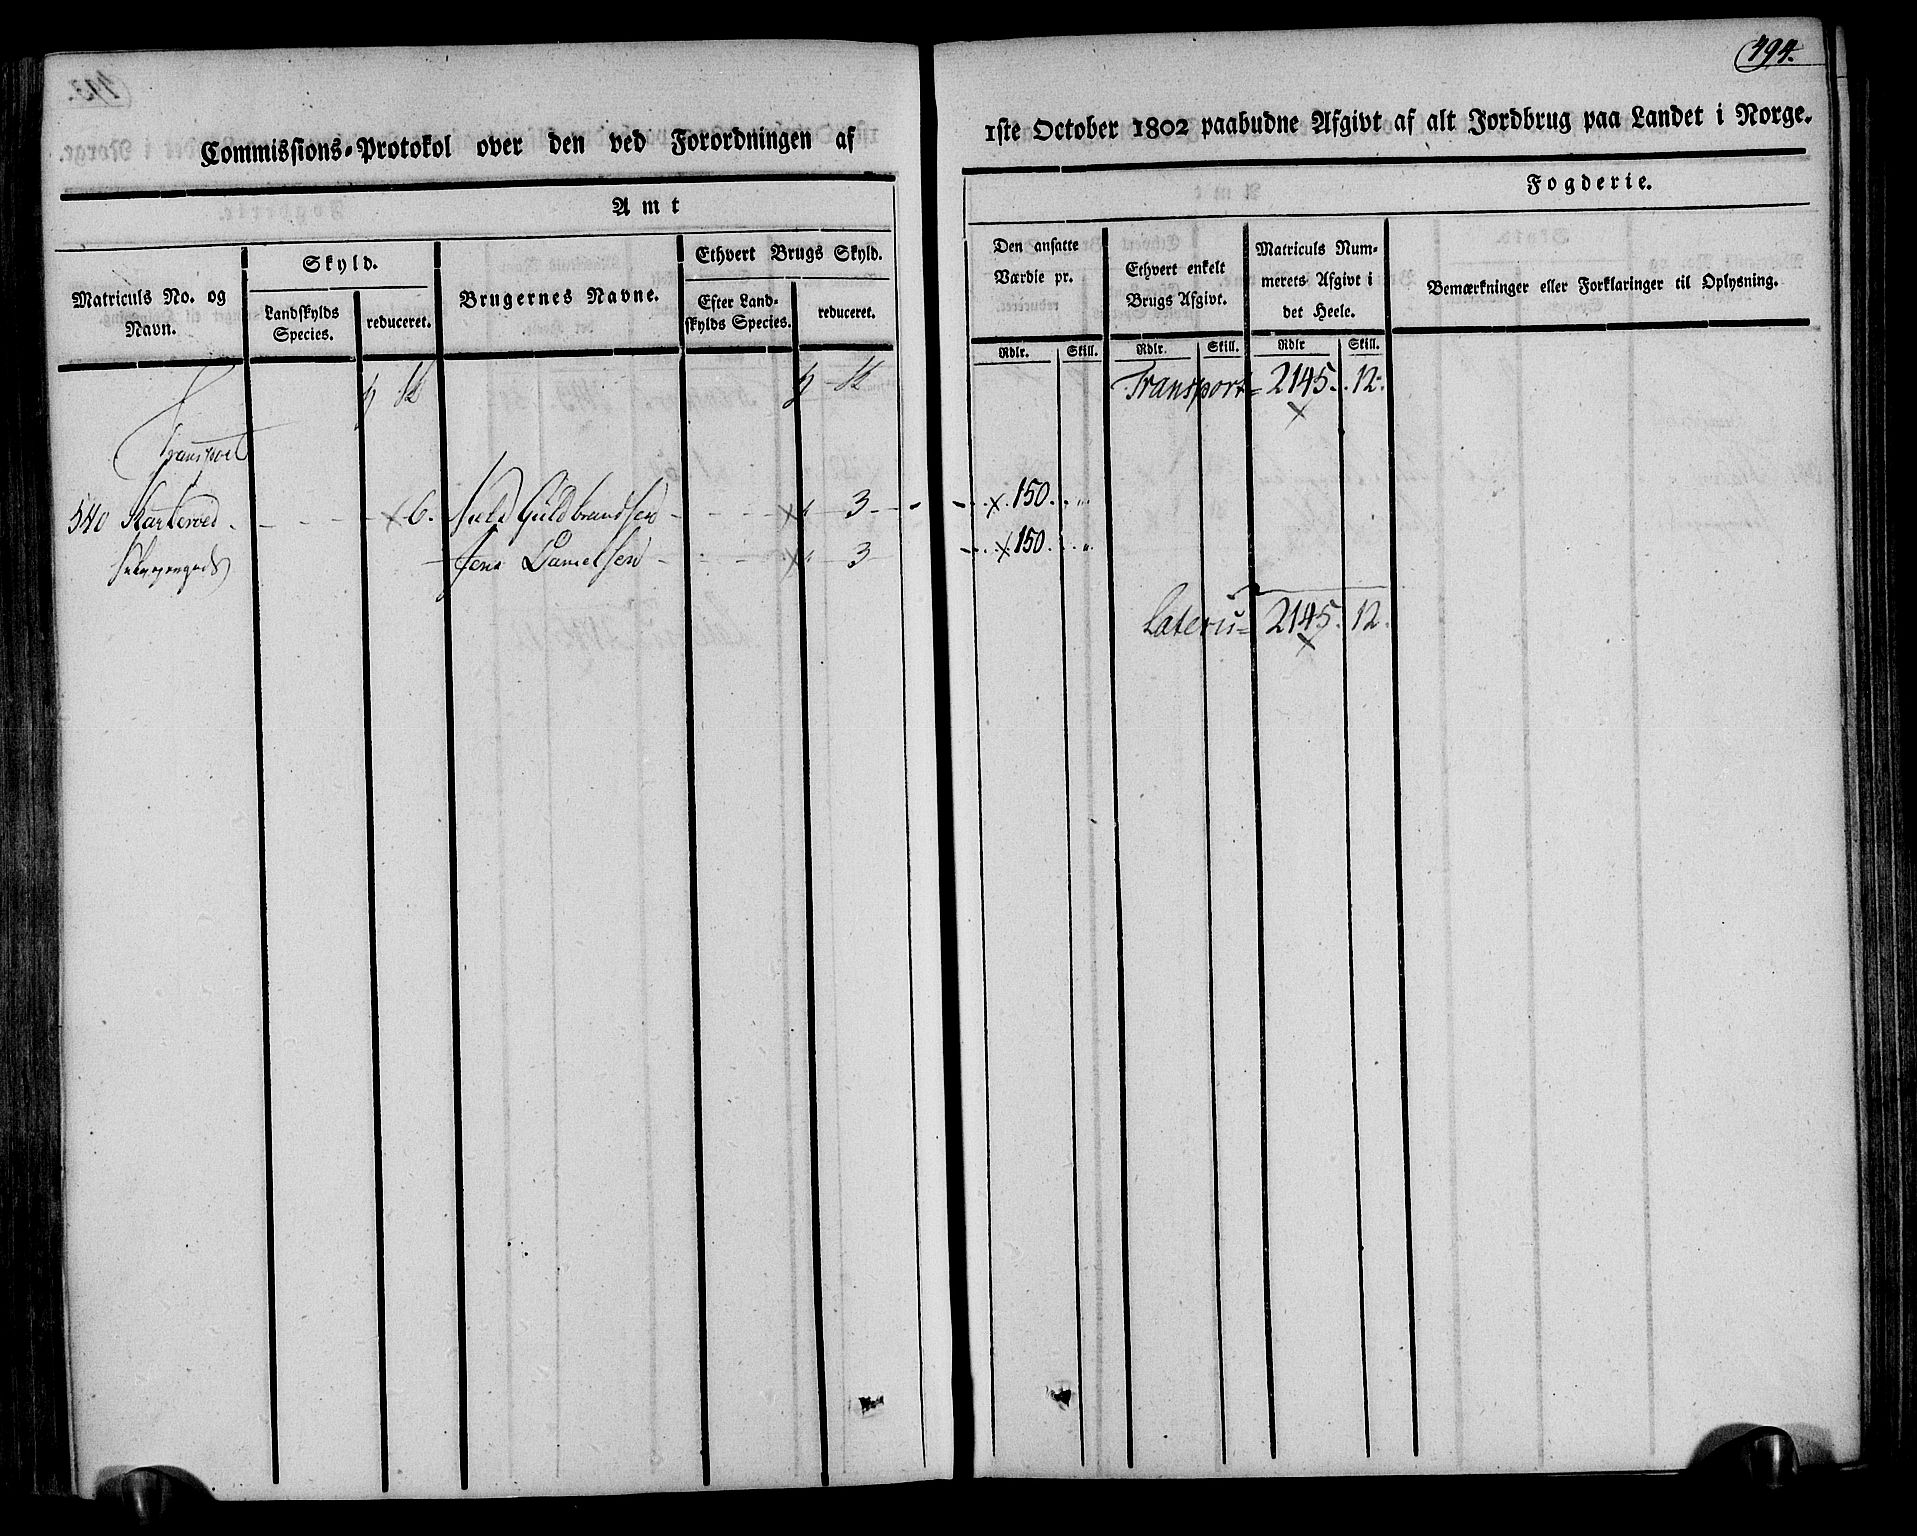 494.
Commissions-Protokol over den ved Forordningen af 1ste October 1802 paabudne Afgivt af alt Jordbrug paa Landet i Norge.
Amt
Fogderie.
Matriculs No. og Navn.
Skyld.
Landskylds Species.
reduceret.
Brugernes Navne.
Ethvert Brugs Skyld.
Efter Landskylds Species.
reduceret.
Den ansatte Værdie pr.
Rdlr. Skill.
Ethvert enkelt Brugs Afgivt.
Rdlr. Skill.
Matriculs Nummerets Afgivt i det Heele.
Rdlr Skill.
Bemærkninger eller Forklaringer til Oplysning.
Transport 2145. 12.
Transport
540 6. Niels Guldbrandsen 3 150.
Jens Danielsen 3 150.
Lateris 2145. 12.